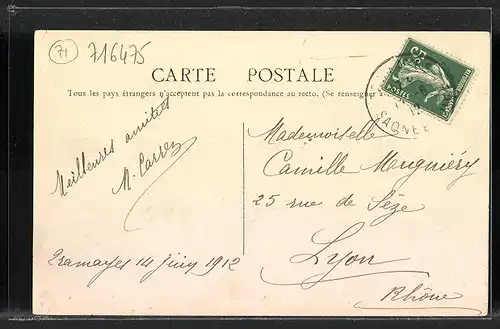 71
716475
CARTE POSTALE
Tous les pays étrangers n'acceptent pas la correspondance au recto. (Se renseigner
Meilleures amitiés
M. Carrez
Tramayes 14 juin 1912
Mademoiselle
Camille Mougniéry
25 rue de Sèze
Lyon
Rhône
5c
POSTES